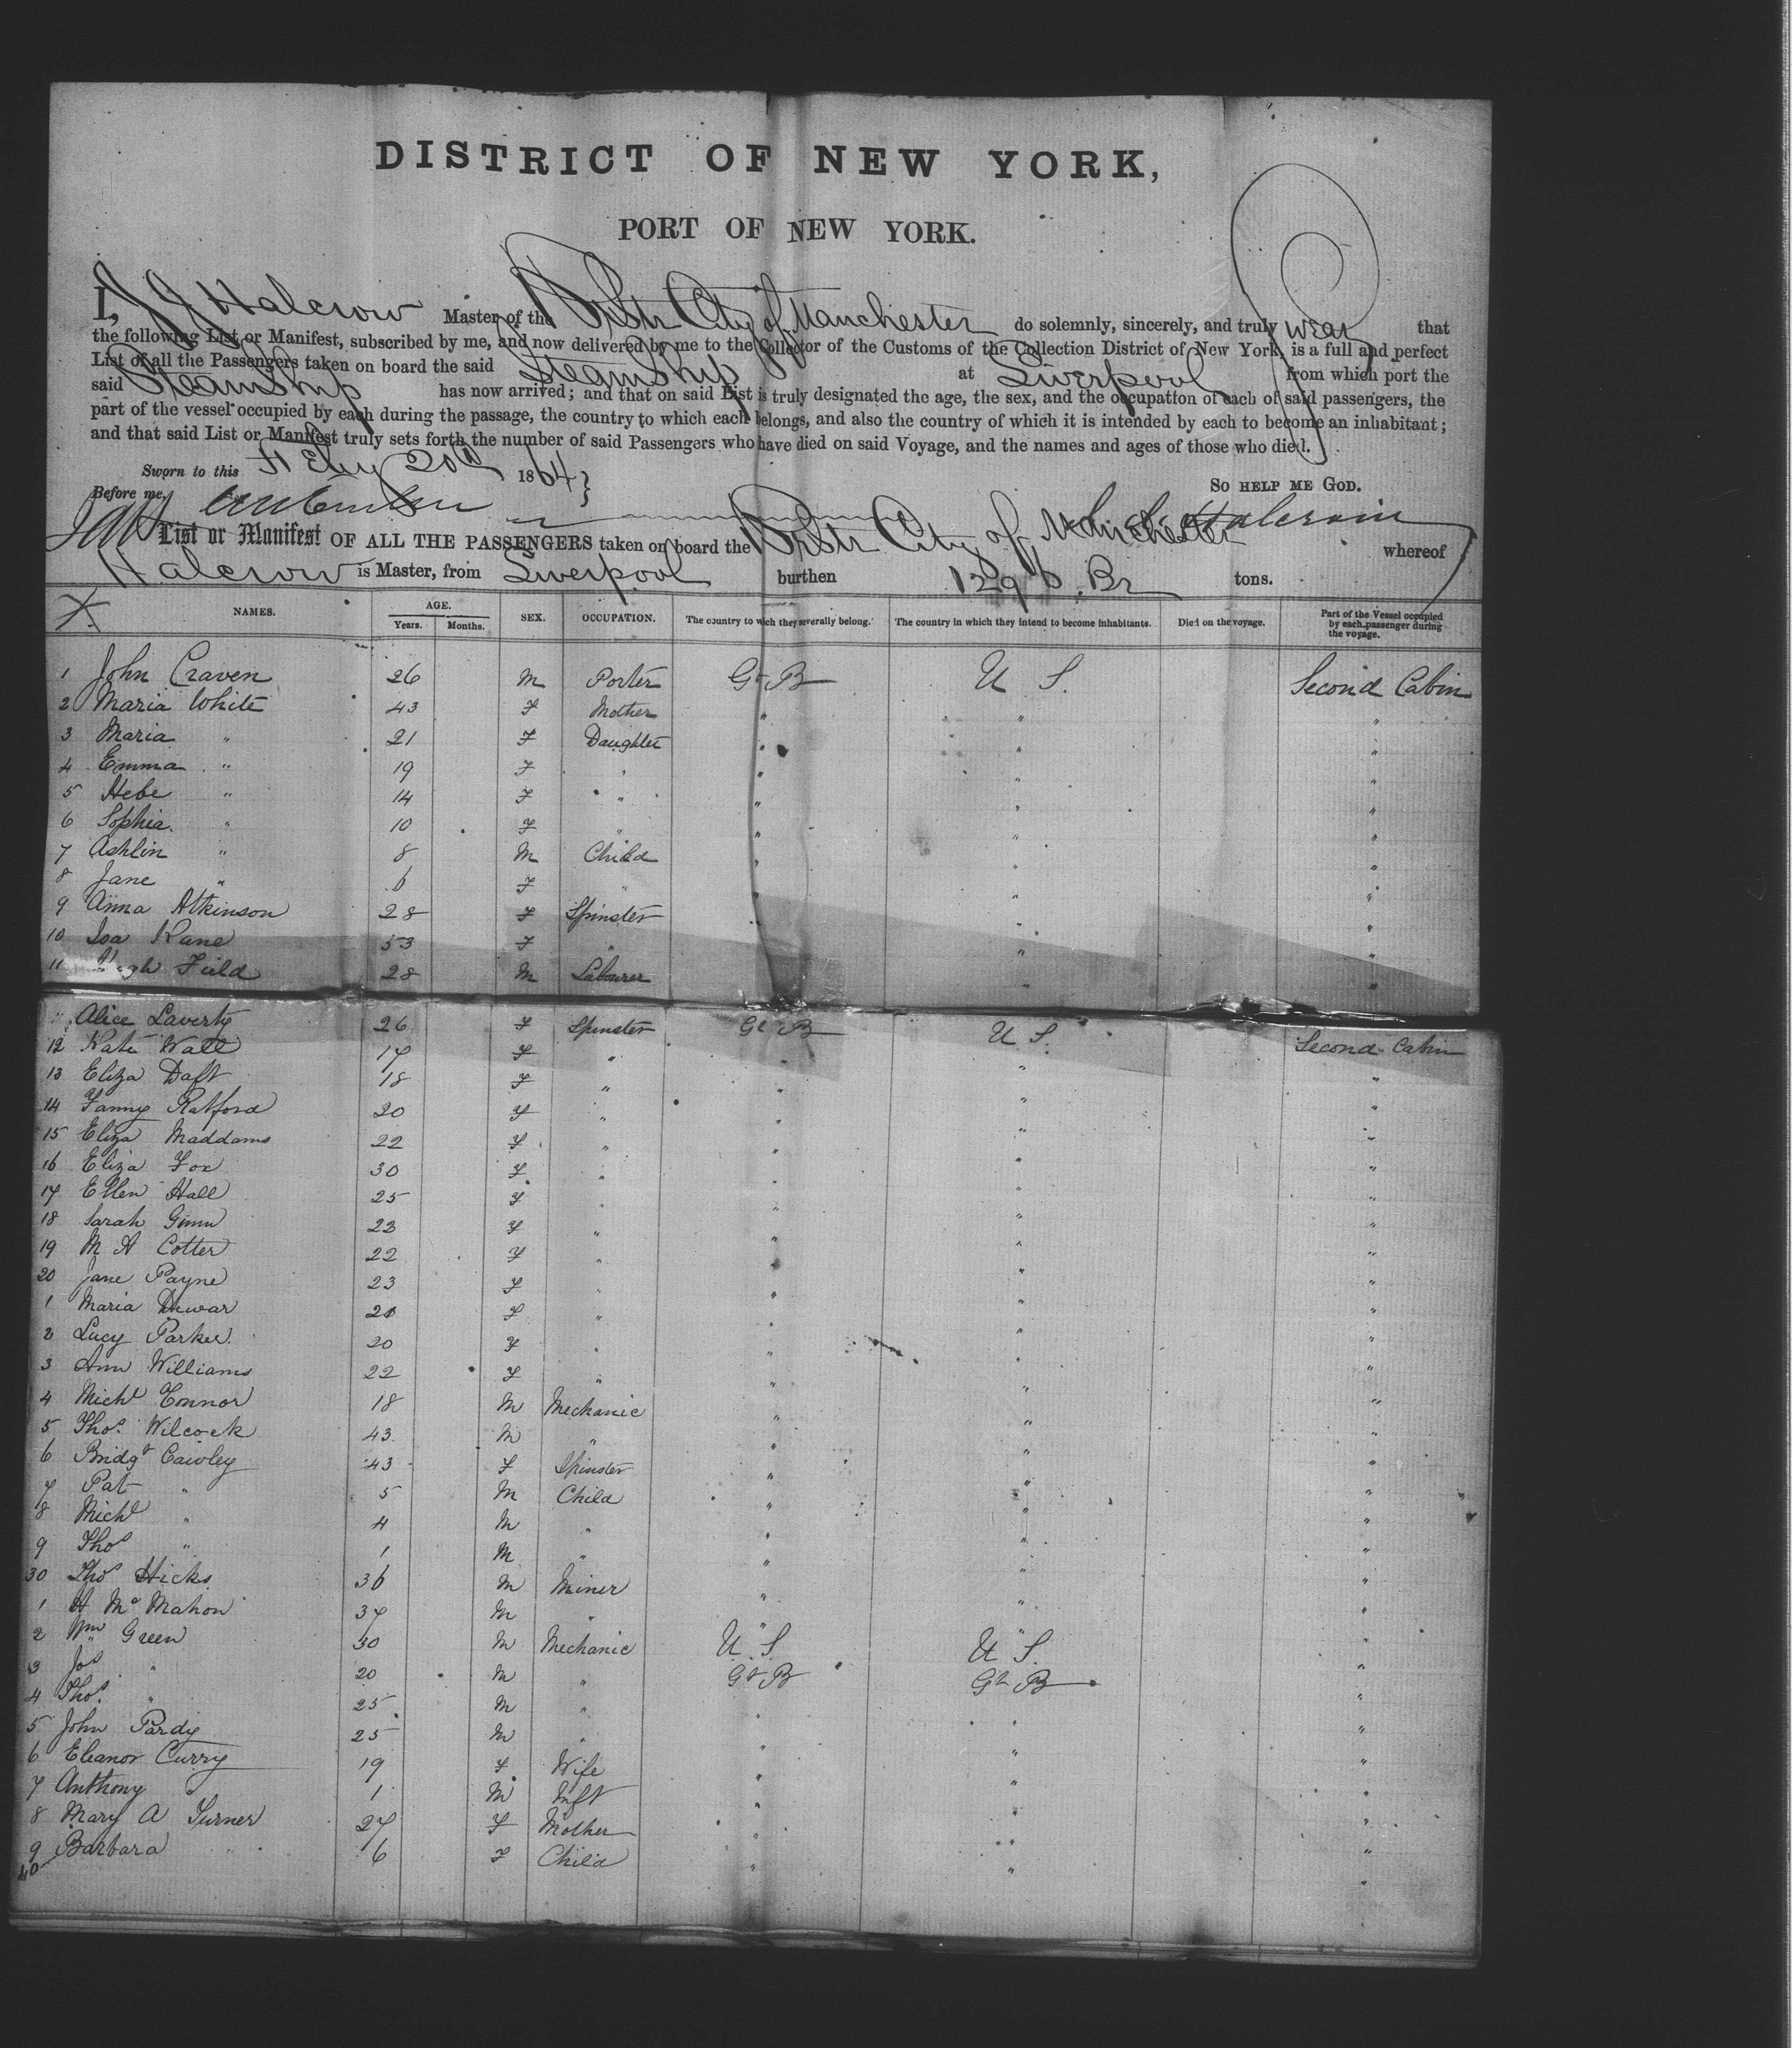 DISTRICT OF NEW YORK,
PORT OF NEW YORK.
I, J J Halcrow Master of the Br Str City of Manchester do solemnly, sincerely, and truly swear that
the following List or Manifest, subscribed by me, and now delivered by me to the Collector of the Customs of the Collection District of New York, is a full and perfect
List of all the Passengers taken on board the said Steamship at Liverpool from which port the
said Steamship has now arrived; and that on said List is truly designated the age, the sex, and the occupation of each of said passengers, the
part of the vessel occupied by each during the passage, the country to which each belongs, and also the country of which it is intended by each to become an inhabitant;
and that said List or Manifest truly sets forth the number of said Passengers who have died on said Voyage, and the names and ages of those who died.
Sworn to this Feby 20th 1864 }
So HELP ME GOD.
Before me,
List or Manifest OF ALL THE PASSENGERS taken on board the Br Str City of Manchester whereof
Halcrow is Master, from Liverpool burthen 1296 Br tons.
NAMES. AGE. Years. Months. SEX. OCCUPATION. The country to wich they severally belong. The country in which they intend to become inhabitants. Died on the voyage. Part of the Vessel occupied by each passenger during the voyage.
1 John Craven 26 M Porter Gt B U S. Second Cabin
2 Maria White 43 F Mother " " "
3 Maria " 21 F Daughter " " "
4 Emma " 19 F " " " "
5 Hebe " 14 F " " " "
6 Sophia " 10 F " " " "
7 Ashlin " 8 M Child " " "
8 Jane " 6 F " " " "
9 Anna Atkinson 28 F Spinster " " "
10 Isa Kane 53 F " " " "
11 Hugh Field 28 M Labourer " "
11 Alice Laverty 26 F Spinster Gt B U S. Second Cabin
12 Kate Wall 17 F " " " "
13 Eliza Daft 18 F " " " "
14 Fanny Ratford 20 F " " " "
15 Eliza Maddams 22 F " " " "
16 Eliza Fox 30 F " " " "
17 Ellen Hall 25 F " " " "
18 Sarah Ginn 23 F " " " "
19 M A Cotter 22 F " " " "
20 Jane Payne 23 F " " " "
1 Maria Dewar 21 F " " " "
2 Lucy Parker 20 F " " " "
3 Ann Williams 22 F " " " "
4 Michl Connor 18 M Mechanic " " "
5 Thos. Wilcock 43 M " " " "
6 Bridgt Cawley 43 F Spinster " " "
7 Pat " 5 M Child " " "
8 Michl " 4 M " " " "
9 Thos " 1 M " " " "
30 Thos Hicks 36 M Miner " " "
1 H McMahon 37 M " " " "
2 Wm Green 30 M Mechanic U. S. U S. "
3 Jos " 20 M " Gt B Gt B "
4 Thos. " 25 M " " " "
5 John Pardy 25 M " " " "
6 Eleanor Curry 19 F Wife " " "
7 Anthony " 1 M Inft " " "
8 Mary A Turner 27 F Mother " " "
9 Barbara " 6 F Child " " "
40